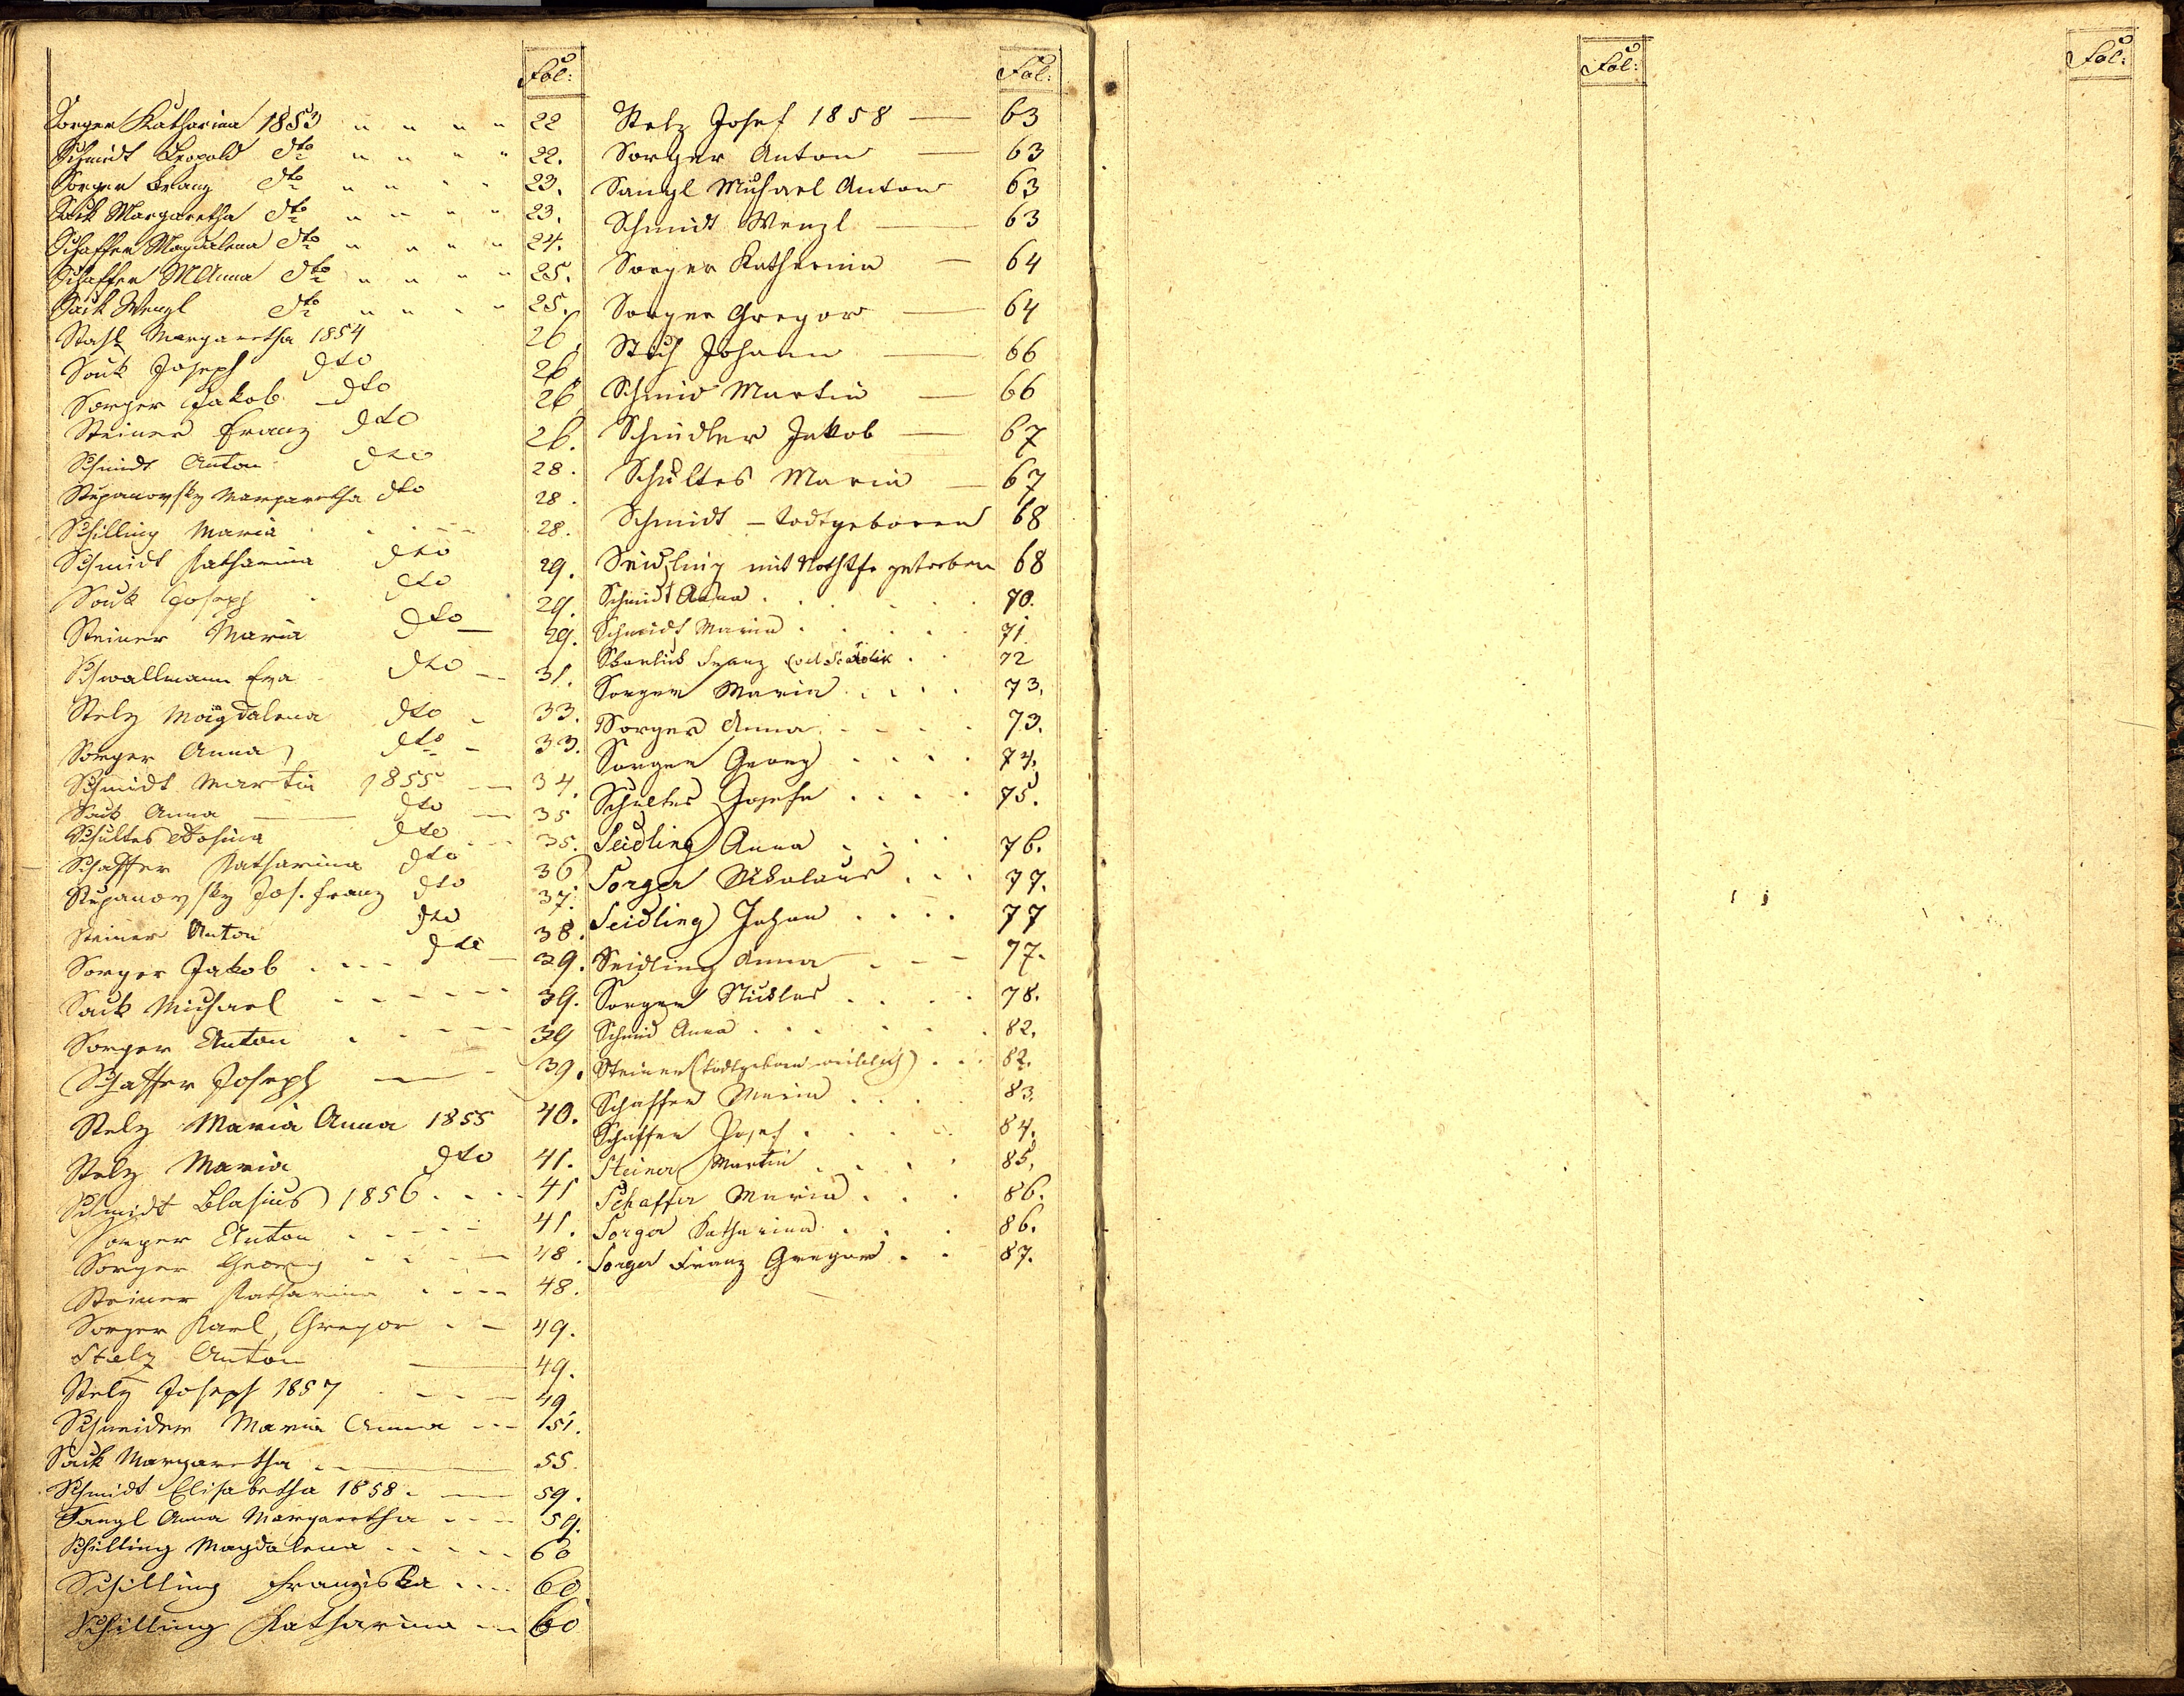 Fol:
Sorger Katharina 1853 " " " " 22
Schmidt Leopold dto " " " " 22.
Sorger Franz dto " " " " 23.
Sack Margaretha dto " " " " 23.
Schaffer Magdalena dto " " " " 24.
Schaffer M Anna dto " " " " 25.
Sack Wenzl dto " " " " 25.
Stahl Margaretha 1854 26.
Sack Joseph dto 26
Sorger Jakob dto 26
Steiner Franz dto 26.
Schmidt Anton dto 28.
Stupanovsky Margaretha dto 28.
Schilling Maria 28.
Schmidt Katharina dto 29.
Sack Joseph dto 29.
Steiner Maria dto 29.
Schwallmann Eva dto 31.
Stelz Magdalena dto 33.
Sorger Anna dto 33.
Schmidt Martin 1855 34.
Sack Anna dto 35
Schultes Rosina dto 35.
Schaffer Katharina dto 36
Stupanovsky Jos. Franz dto 37.
Steiner Anton dto 38.
Sorger Jakob dto 39.
Sack Michael 39.
Sorger Anton 39
Schaffer Joseph 39.
Stelz Maria Anna 1855 40.
Stelz Maria dto 41.
Schmidt Blasius 1856 41
Sorger Anton 41.
Sorger Georg 48.
Steiner Katharina 48.
Sorger Karl, Gregor 49.
Stelz Anton 49.
Stelz Joseph 1857 49
Schneider Maria Anna 51.
Sack Margaretha 55.
Schmidt Elisabetha 1858. 59.
Sangl Anna Margaretha 59.
Schilling Magdalena 60
Schilling Franziska 60
Schilling Katharina 60
Fol:
Stelz Josef 1858 — 63
Sorger Anton — 63
Sangl Michael Anton 63
Schmidt Wenzl — 63
Sorger Katharina — 64
Sorger Gregor — 64
Stich Johann — 66
Schmid Martin — 66
Schindler Jakob — 67
Schultes Maria — 67
Schmidt – todtgeboren 68
Seidling mit Nothtfe gstorben 68
Schmidt Anna 70.
Schmidt Maria 71
Skarlik Franz 72
Sorger Maria 73.
Sorger Anna 73.
Sorger Georg 74.
Schultes Josefa 75.
Seidling Anna 76.
Sorger Nikolaus 77.
Seidling Johan 77
Seidling Anna 77.
Sorger Niklas 78.
Schmid Anna 82.
Steiner (todtgeboren weiblich) 82.
Schaffer Maria 83.
Schaffer Josef 84.
Steiner Martin 85.
Schaffer Maria 86.
Sorger Katharina 86.
Sorger Franz Gregor 87.
Fol:
Fol: